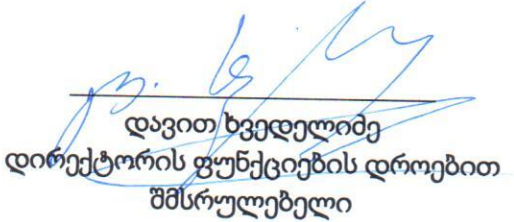 დავით ხვედელიძე
დირექტორის ფუნქციების დროებით
შმსრულებელი